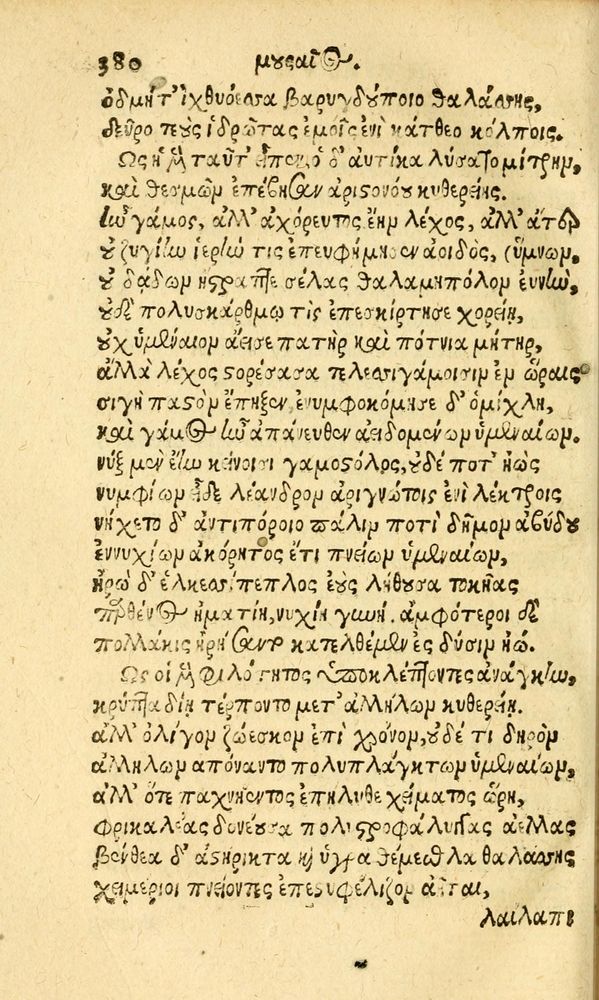 380 μουσαῖος.
ὀδμή τ' ἰχθυόεσσα βαρυγδούποιο θαλάσσης,
δεῦρο τεοὺς ἱδρῶτας ἐμοῖς ἐνὶ κάτθεο κόλποις.
Ὣς ἡ μὲν ταῦτ' εἶπεν, ὁ δ' αὐτίκα λύσατο μίτρην,
καὶ θεσμῶν ἐπέβησαν ἀριστονόου κυθερείης.
ἦν γάμος, ἀλλ' ἀχόρευτος ἔην λέχος, ἀλλ' ἄτερ
οὐ ζυγίην ἱερήν τις ἐπευφήμησεν ἀοιδὸς, (ὕμνων.
οὐ δάδων ἤστραπτε σέλας θαλαμηπόλον εὐνήν,
οὐδὲ πολυσκάρθμῳ τὶς ἐπεσκίρτησε χορείῃ,
οὐχ ὑμέναιον ἄεισε πατὴρ καὶ πότνια μήτηρ,
ἀλλὰ λέχος στορέσασα τελεσσιγάμοισιν ἐν ὥραις
σιγὴ παστὸν ἔπηξεν, ἐνυμφοκόμησε δ' ὁμίχλη,
καὶ γάμος ἦν ἀπάνευθεν ἀειδομένων ὑμεναίων.
νὺξ μὲν ἔην κείνοισι γαμοστόλος, οὐδέ ποτ' ἠὼς
νυμφίον εἶδε λέανδρον ἀριγνώτοις ἐνὶ λέκτροις
νήχετο δ' ἀντιπόροιο πάλιν ποτὶ δῆμον ἀβύδου
ἐννυχίων ἀκόρητος ἔτι πνείων ὑμεναίων,
ἡρὼ δ' ἑλκεσίπεπλος ἑοὺς λήθουσα τοκῆας
παρθένος ἠματίη, νυχίη γυνή. ἀμφότεροι δὲ
πολλάκις ἠρήσαντο κατελθέμεν ἐς δύσιν ἠῶ.
Ὣς οἱ μὲν φιλότητος ὑποκλέπτοντες ἀνάγκην,
κρυπταδίῃ τέρποντο μετ' ἀλλήλων κυθερείῃ.
ἀλλ' ὀλίγον ζώεσκον ἐπὶ χρόνον, οὐδέ τι δηρὸν
ἀλλήλων ἀπόναντο πολυπλάγκτων ὑμεναίων,
ἀλλ' ὅτε παχνήεντος ἐπήλυθε χείματος ὥρη,
φρικαλέας δονέουσα πολυστροφάλιγγας ἀέλλας
βένθεα δ' ἀστήρικτα καὶ ὑγρὰ θέμεθλα θαλάσσης
χειμέριοι πνείοντες ἐπεστυφέλιζον ἀῆται,
λαίλαπι